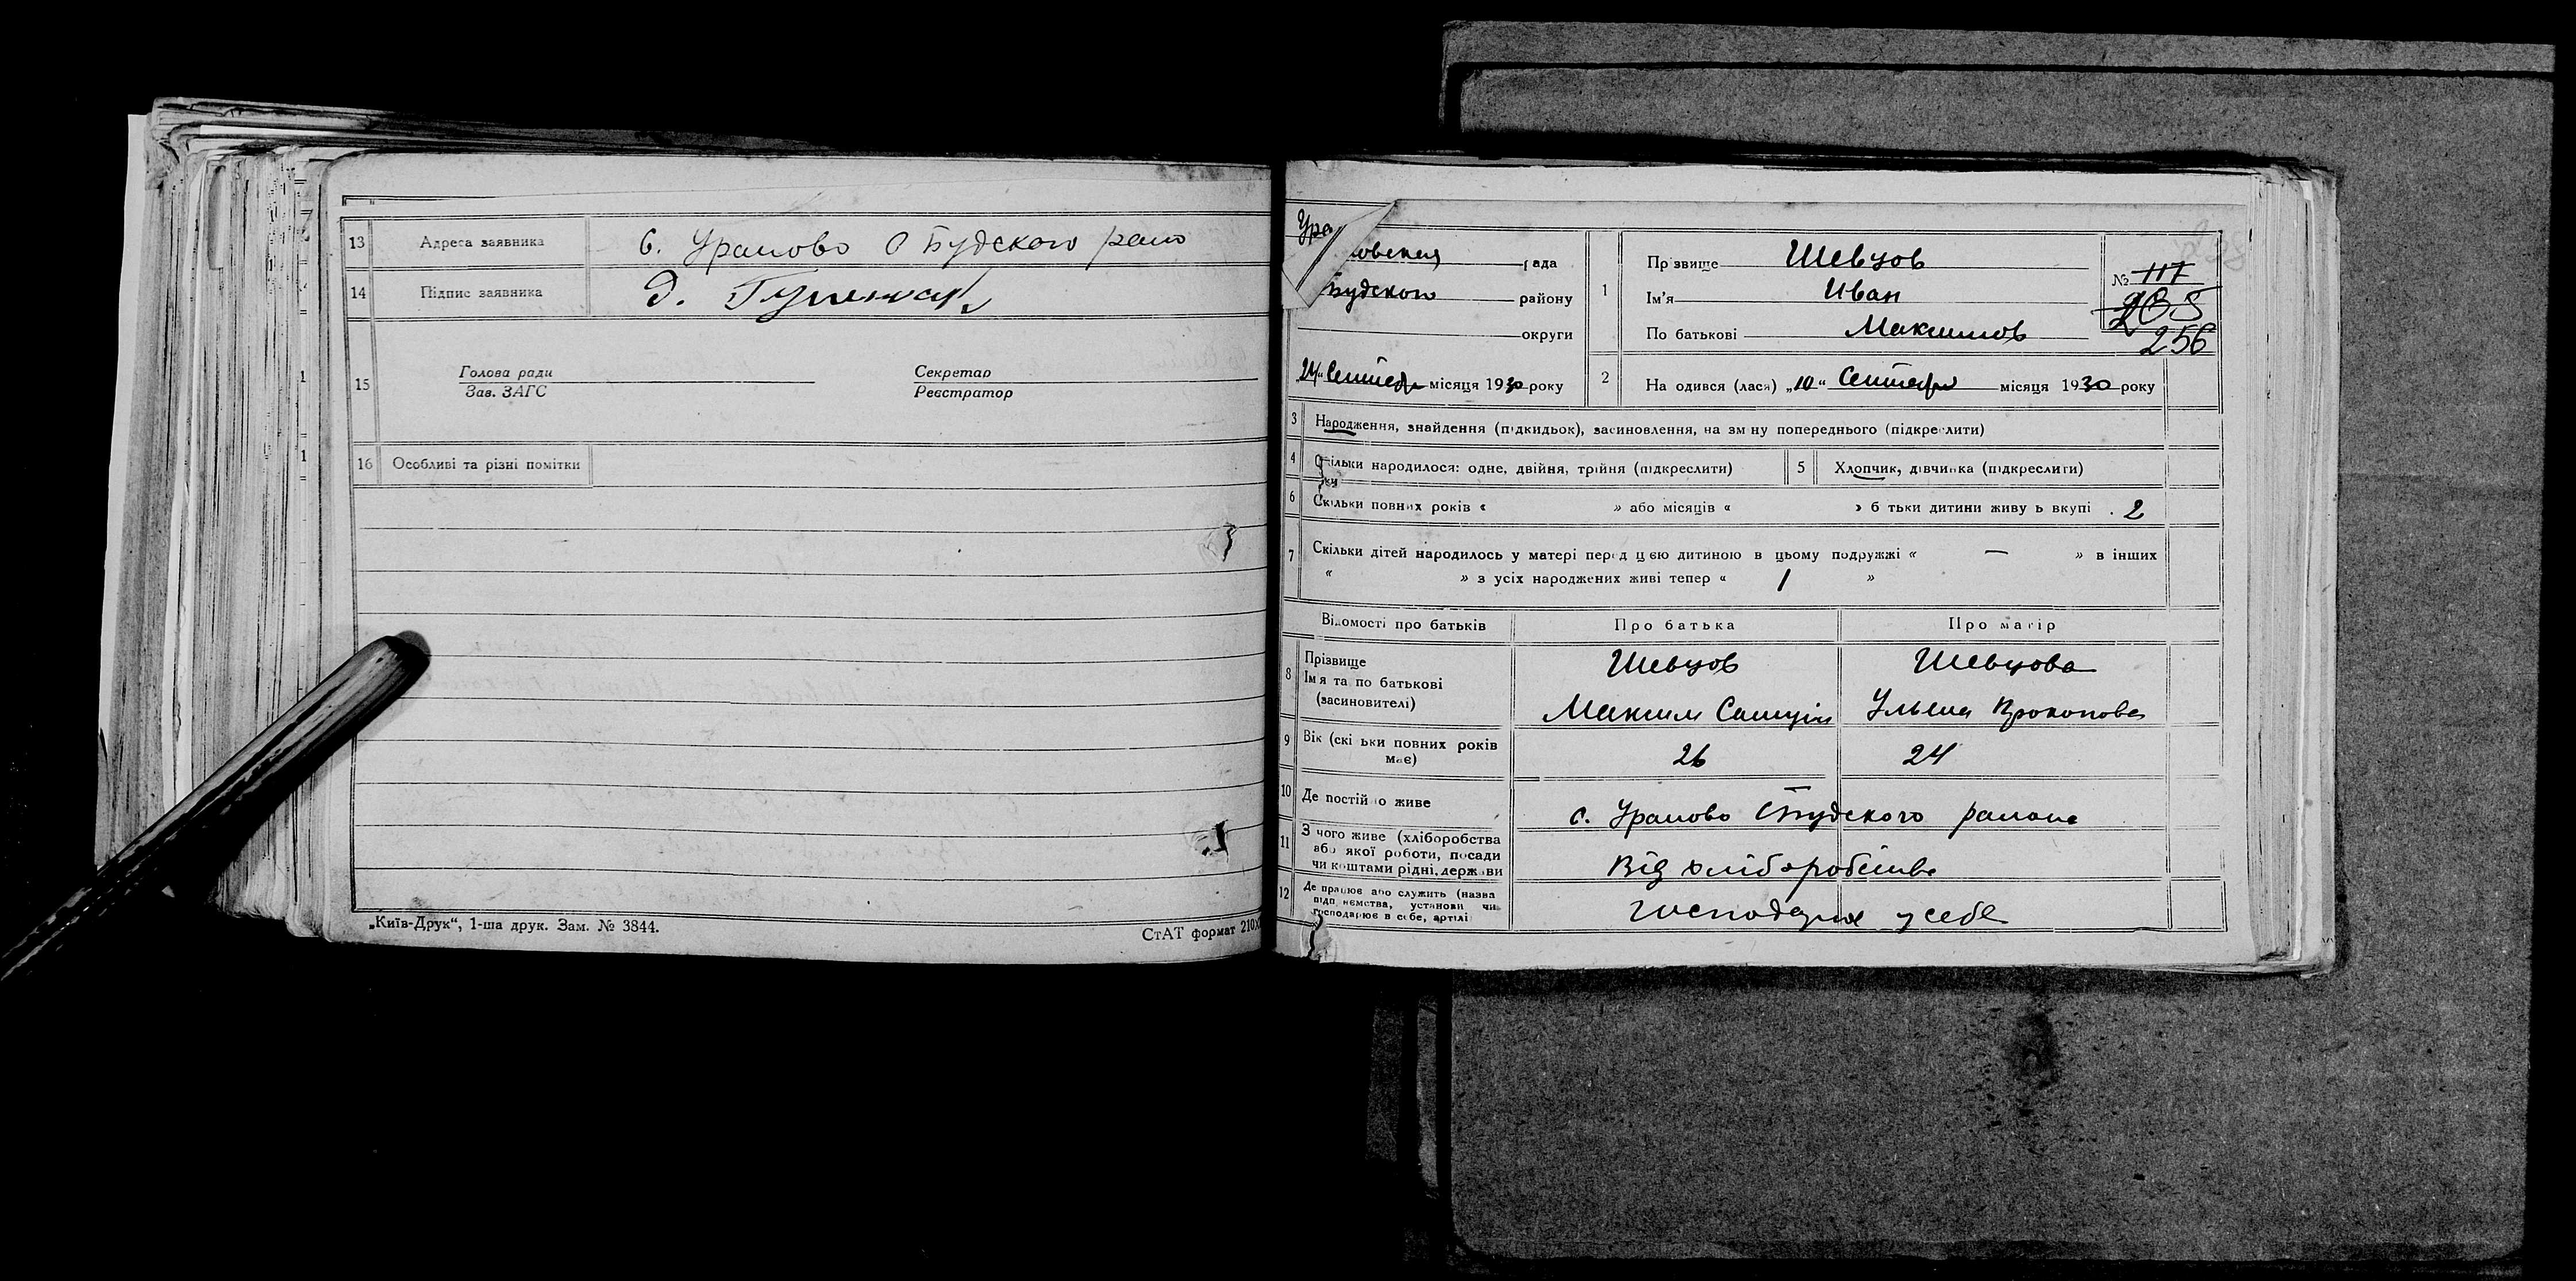 13 Адреса заявника с. Ураново С Будского рано
14 Підпис заявника
15 Голова ради Секретар
Зав. ЗАГС Реєстратор
16 Особливі та різні помітки
„Київ-Друк“, 1-ша друк. Зам. № 3844.
СтАТ формат 210х
Ура
овская рада
Будского району
округи
„24“ Сентебр місяця 1930 року
1 Прізвище Шевцов
Ім'я Иван
По батькові Максимов
№ 117
205
256
2 На одився (лася) „10“ Сентебр місяця 1930 року
3 Народження, знайдення (підкидьок), засиновлення, на зм ну попереднього (підкреслити)
4 Скільки народилося: одне, двійня, трійня (підкреслити) 5 Хлопчик, дівчинка (підкреслити)
6 Скільки повних років « » або місяців « » б тьки дитини живу ь вкупі . 2
7 Скільки дітей народилось у матері перед цією дитиною в цьому подружжі « — » в інших
« » з усіх народжених живі тепер « 1 »
Відомості про батьків Про батька Про матір
8 Прізвище Шевцов Шевцова
Ім'я та по батькові
(засиновителі) Максим Ульяна Прокопова
9 Вік (скі ьки повних років
має) 26 24
10 Де постій о живе с. Ураново СБудского раиона
11 З чого живе (хліборобства
або якої роботи, посади
чи коштами рідні, держави Від хліборобства
12 Де працює або служить (назва
підп иємства, установи чи
господарює в себе, артілі господарює у себе